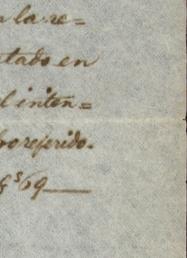 la re=
tado en
l inten=
referido.
69